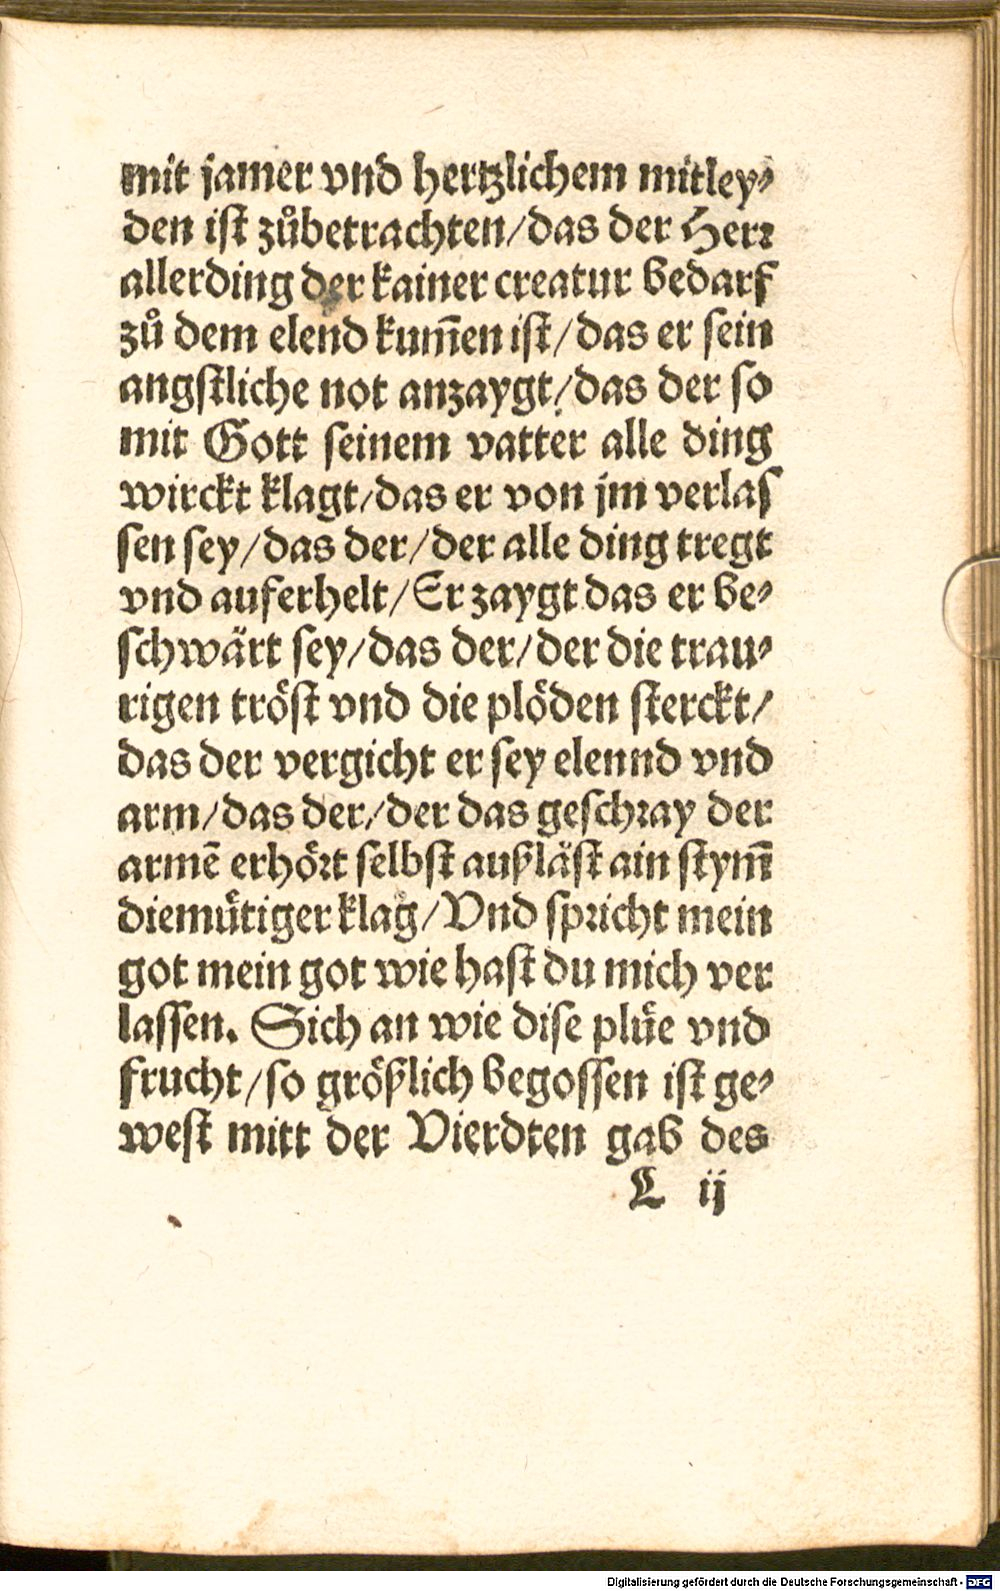 mit jamer vnd hertzlichem mitley⸗
den ist zůbetrachten/das der Herꝛ
allerding der kainer creatur bedarf
zů dem elend kum̄en ist/das er sein
angstliche not anzaygt/das der so
mit Gott seinem vatter alle ding
wirckt klagt/das er von jm verlas
sen sey/das der/der alle ding tregt
vnd auferhelt/Er zaygt das er be⸗
schwärt sey/das der/der die trau⸗
rigen tröst vnd die plöden sterckt/
das der vergicht er sey elennd vnd
arm/das der/der das geschꝛay der
armē erhöꝛt selbst außläst ain stym̄
diemuͤtiger klag/Vnd spꝛicht mein
got mein got wie hast du mich ver
lassen. Sich an wie dise pluͤe vnd
frucht/so größlich begossen ist ge⸗
west mitt der Vierdten gab des
L ij
Digitalisierung gefördert durch die Deutsche Forschungsgemeinschaft - DFG